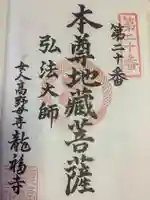 第二十番
第二十番
本尊地藏菩薩
弘法大師
女人高野 龍福寺